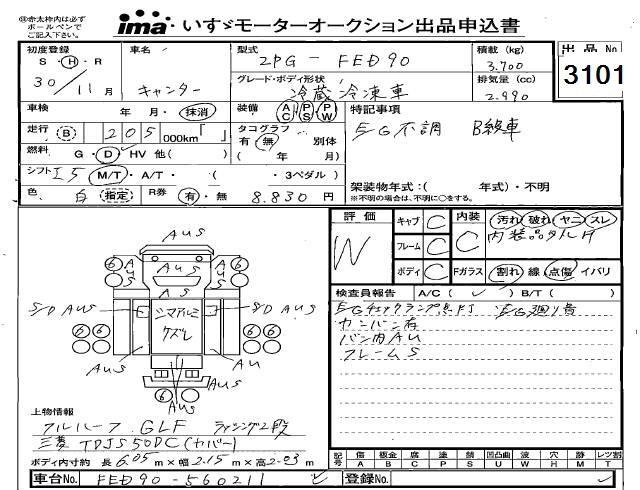 ㊟赤太枠内は必ず
ボールペンで
ご記入下さい。
ima いすゞモーターオークション出品申込書
初度登録 車名 型式 2PG - FED90 積載 (kg) 3,700 出品No
S・H・R 30／11月 キャンター グレード・ボディ形状 冷蔵冷凍車 排気量 (cc) 2,990 3101
車検 年 月・抹消 装備 AC PS PW 特記事項
走行 B 205 000km「 」 タコグラフ 有・無 別体 E/G不調 B級車
燃料 G・D・HV 他( ) ( 年 月)
シフト I5 M/T・A/T・( ・3ペダル) 架装物年式:( 年式)・不明
色 白 指定 R券 有・無 8,830円 ※不明の場合は、不明に○をする。
評価 W キャブ C 内装 C 汚れ 破れ ヤニ スレ
フレーム C
ボディ C Fガラス 割れ 線 点傷 イバリ
検査員報告 A/C( ✓ ) B/T( )
E/Gチェックランプ点灯
カンバン有
バン内AU
フレームS
AUS
6 6
AUS AUS
S/D AUS S/D AUS
シマアルミ
ケズレ
6 6 6 6
AU AU
AUS AUS
AUS
6
AUS
上物情報
フルハーフ GLF ラッシング2段
三菱 TDJS50DC(カバー)
ボディ内寸約 長 6.05 m×幅 2.15 m×高 2.03 m
記号 傷A 板金B 腐C 塗P 錆S 凹凸曲U 波W 穴H 跡M レツ割T
車台No. FED90-560211 登録No.